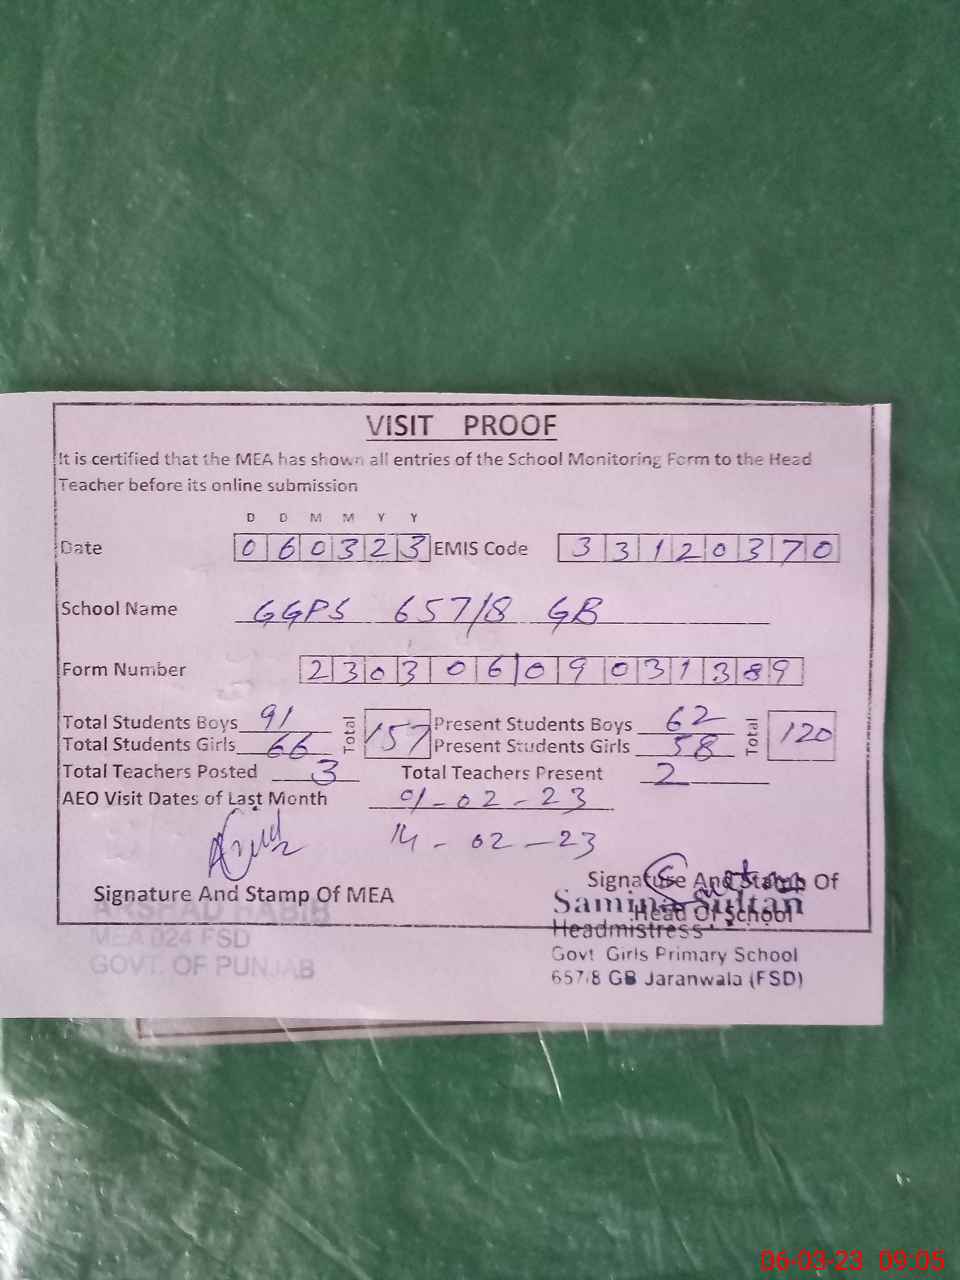 VISIT PROOF
It is certified that the MEA has shown all entries of the School Monitoring Form to the Head
Teacher before its online submission
D D M M Y Y
Date 060323 EMIS Code 33120370
School Name GGPS 657/8 GB
Form Number 2303060903 1389
Total Students Boys 91 Total 157 Present Students Boys 62 Total 120
Total Students Girls 66 Present Students Girls 58
Total Teachers Posted 3 Total Teachers Present 2
AEO Visit Dates of Last Month 01-02-23
14-02-23
Signature And Stamp Of MEA Signature And Stamp Of
Head Of School
ARSHAD HABIB
MEA 024 FSD
GOVT. OF PUNJAB
Samina Sultan
Headmistress
Govt Girls Primary School
657/8 GB Jaranwala (FSD)
06-03-23 09:05